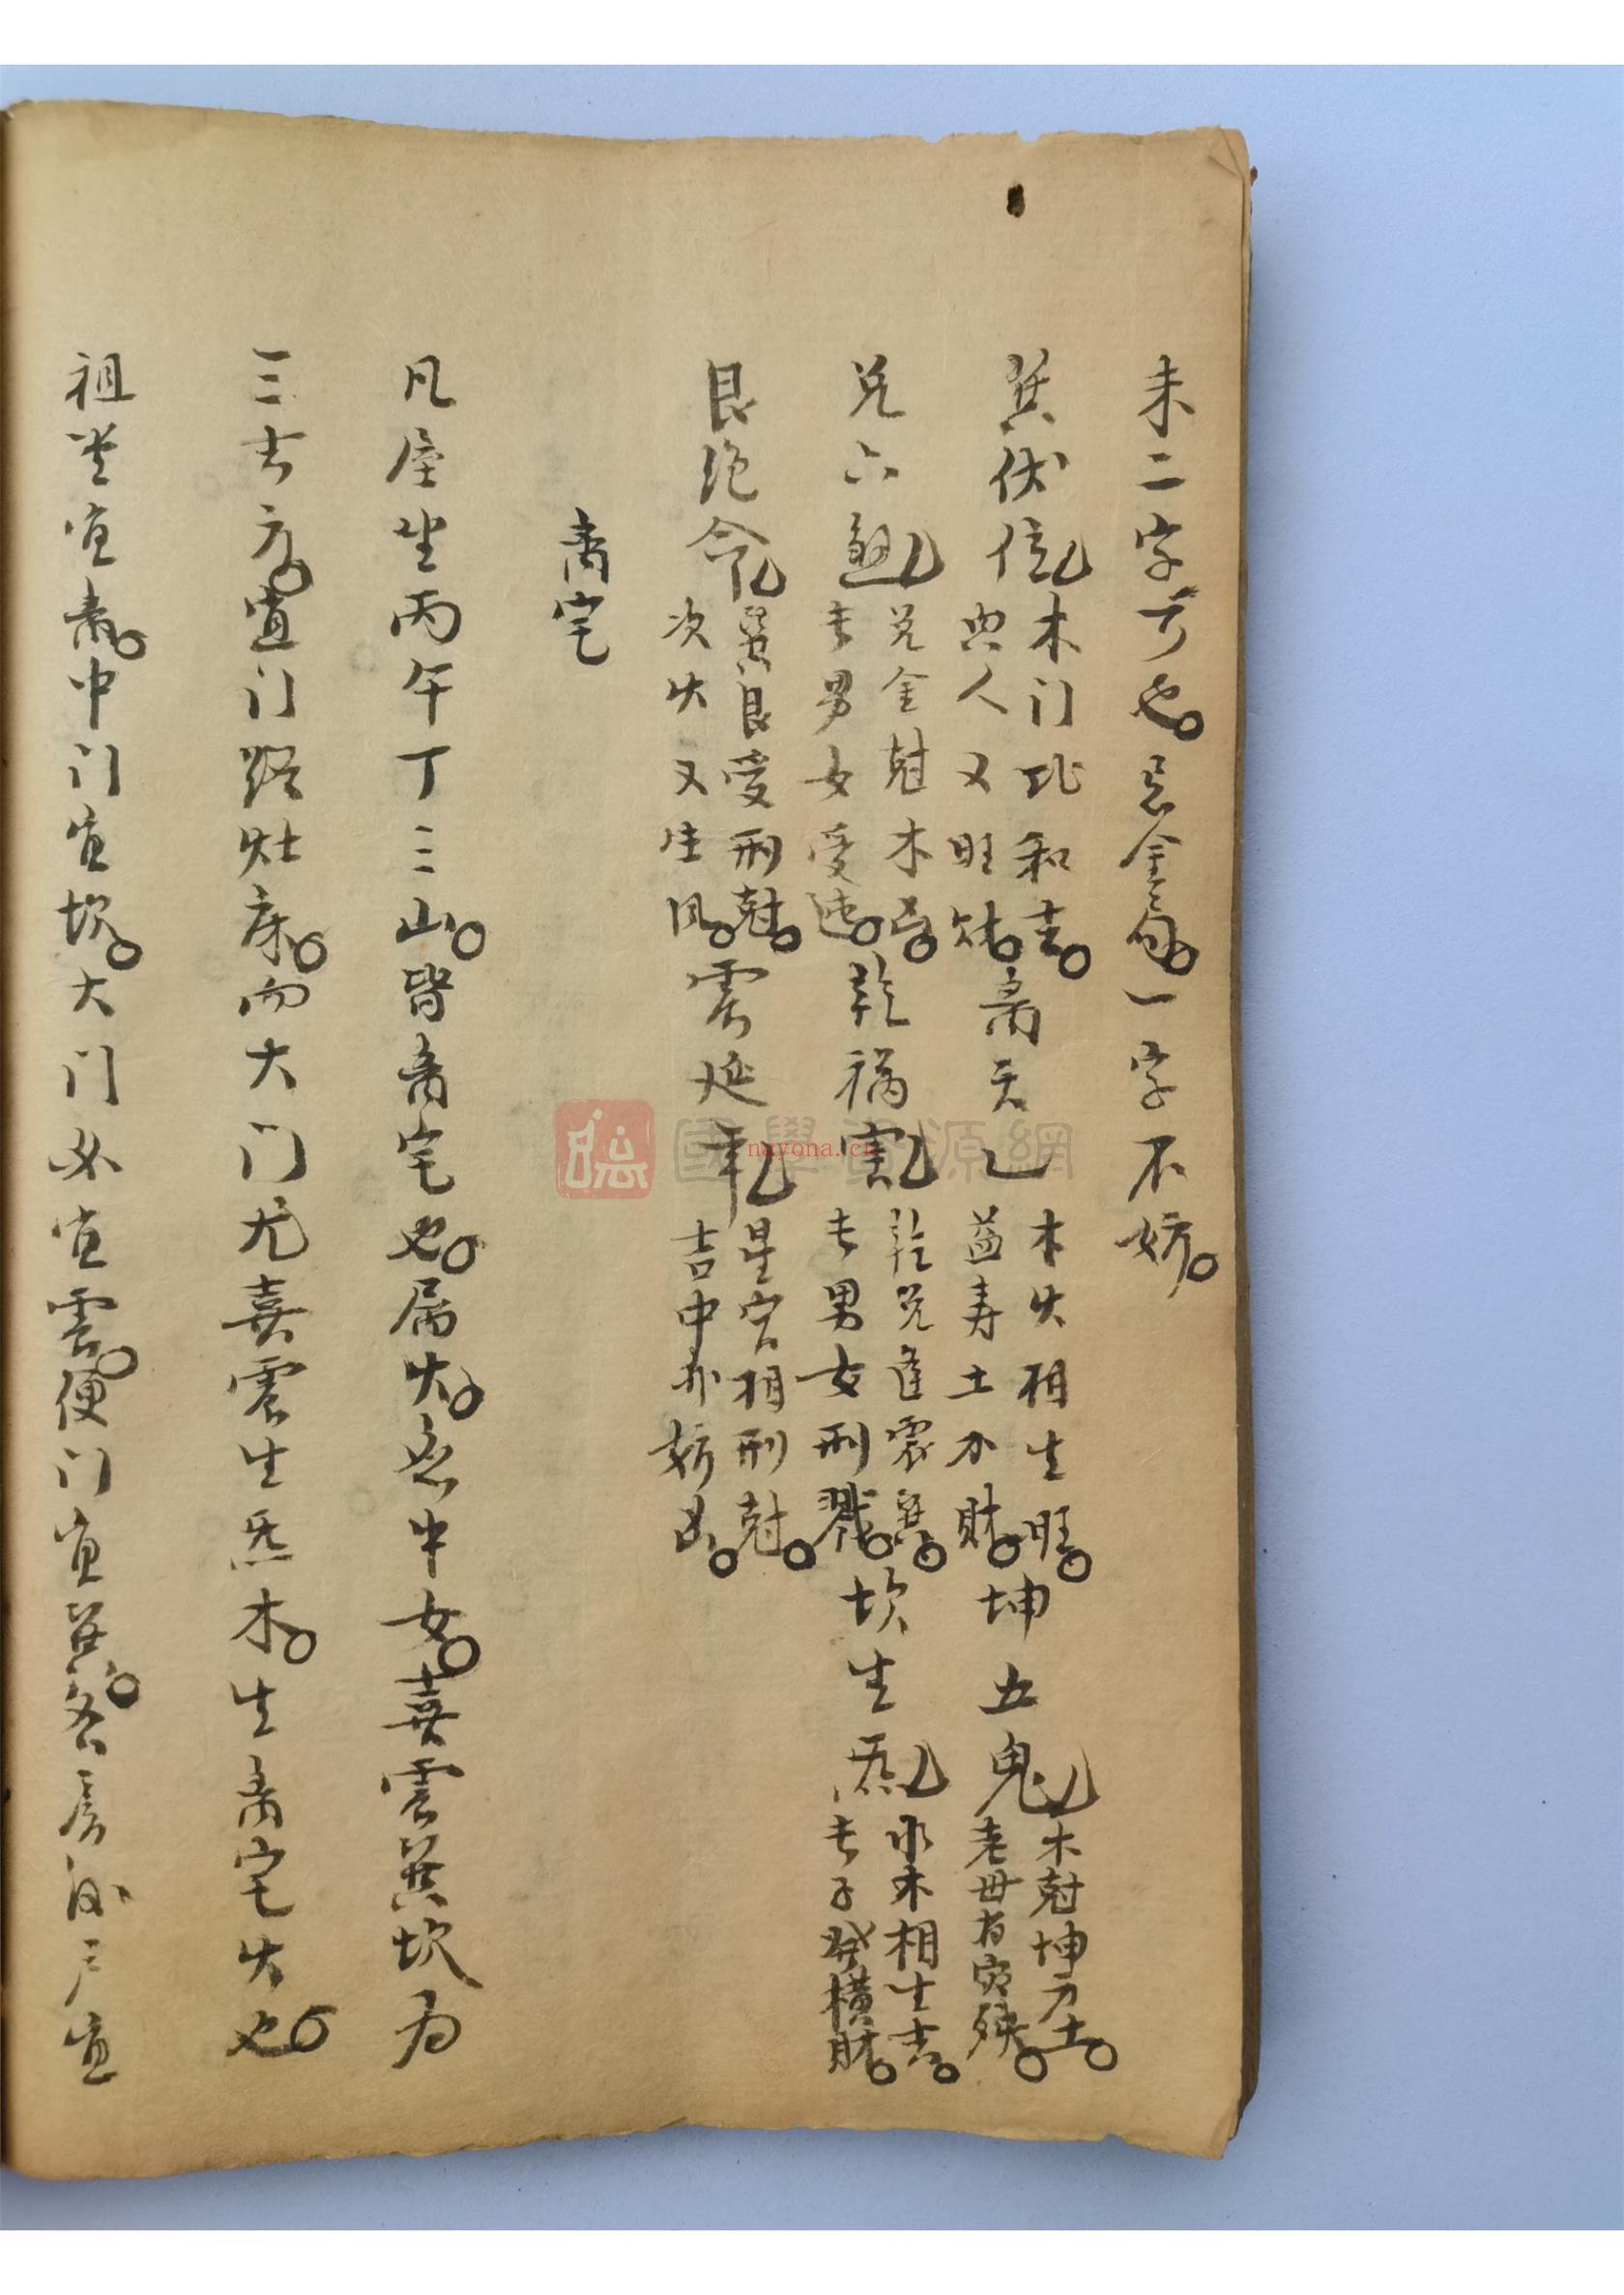 未二字可也。忌金自一字不妨。
巽伏位 木门比和吉。典人又旺财。离天乙 木火相生旺。益寿土亦财。坤五鬼 木尅坤方土。老母有灾殃。
兑六煞 兑金尅木 长男女受 乾祸害 乾兑逢震巽。长男女刑戮。坎生炁 水木相生吉。长子发横财。
艮绝命 巽艮受刑尅。次火又生风。震延年 星宫相刑尅。吉中亦妨凶。
离宅
凡屋坐丙午丁三山。皆离宅也。属火。为中女。喜震巽坎为
三吉方。宜门路灶床。而大门尤喜震生炁木。生离宅火也。
祖堂宜离。中门宜坎。大门必宜震。便门宜巽。各房门户宜
nayona.cn
國學資源網